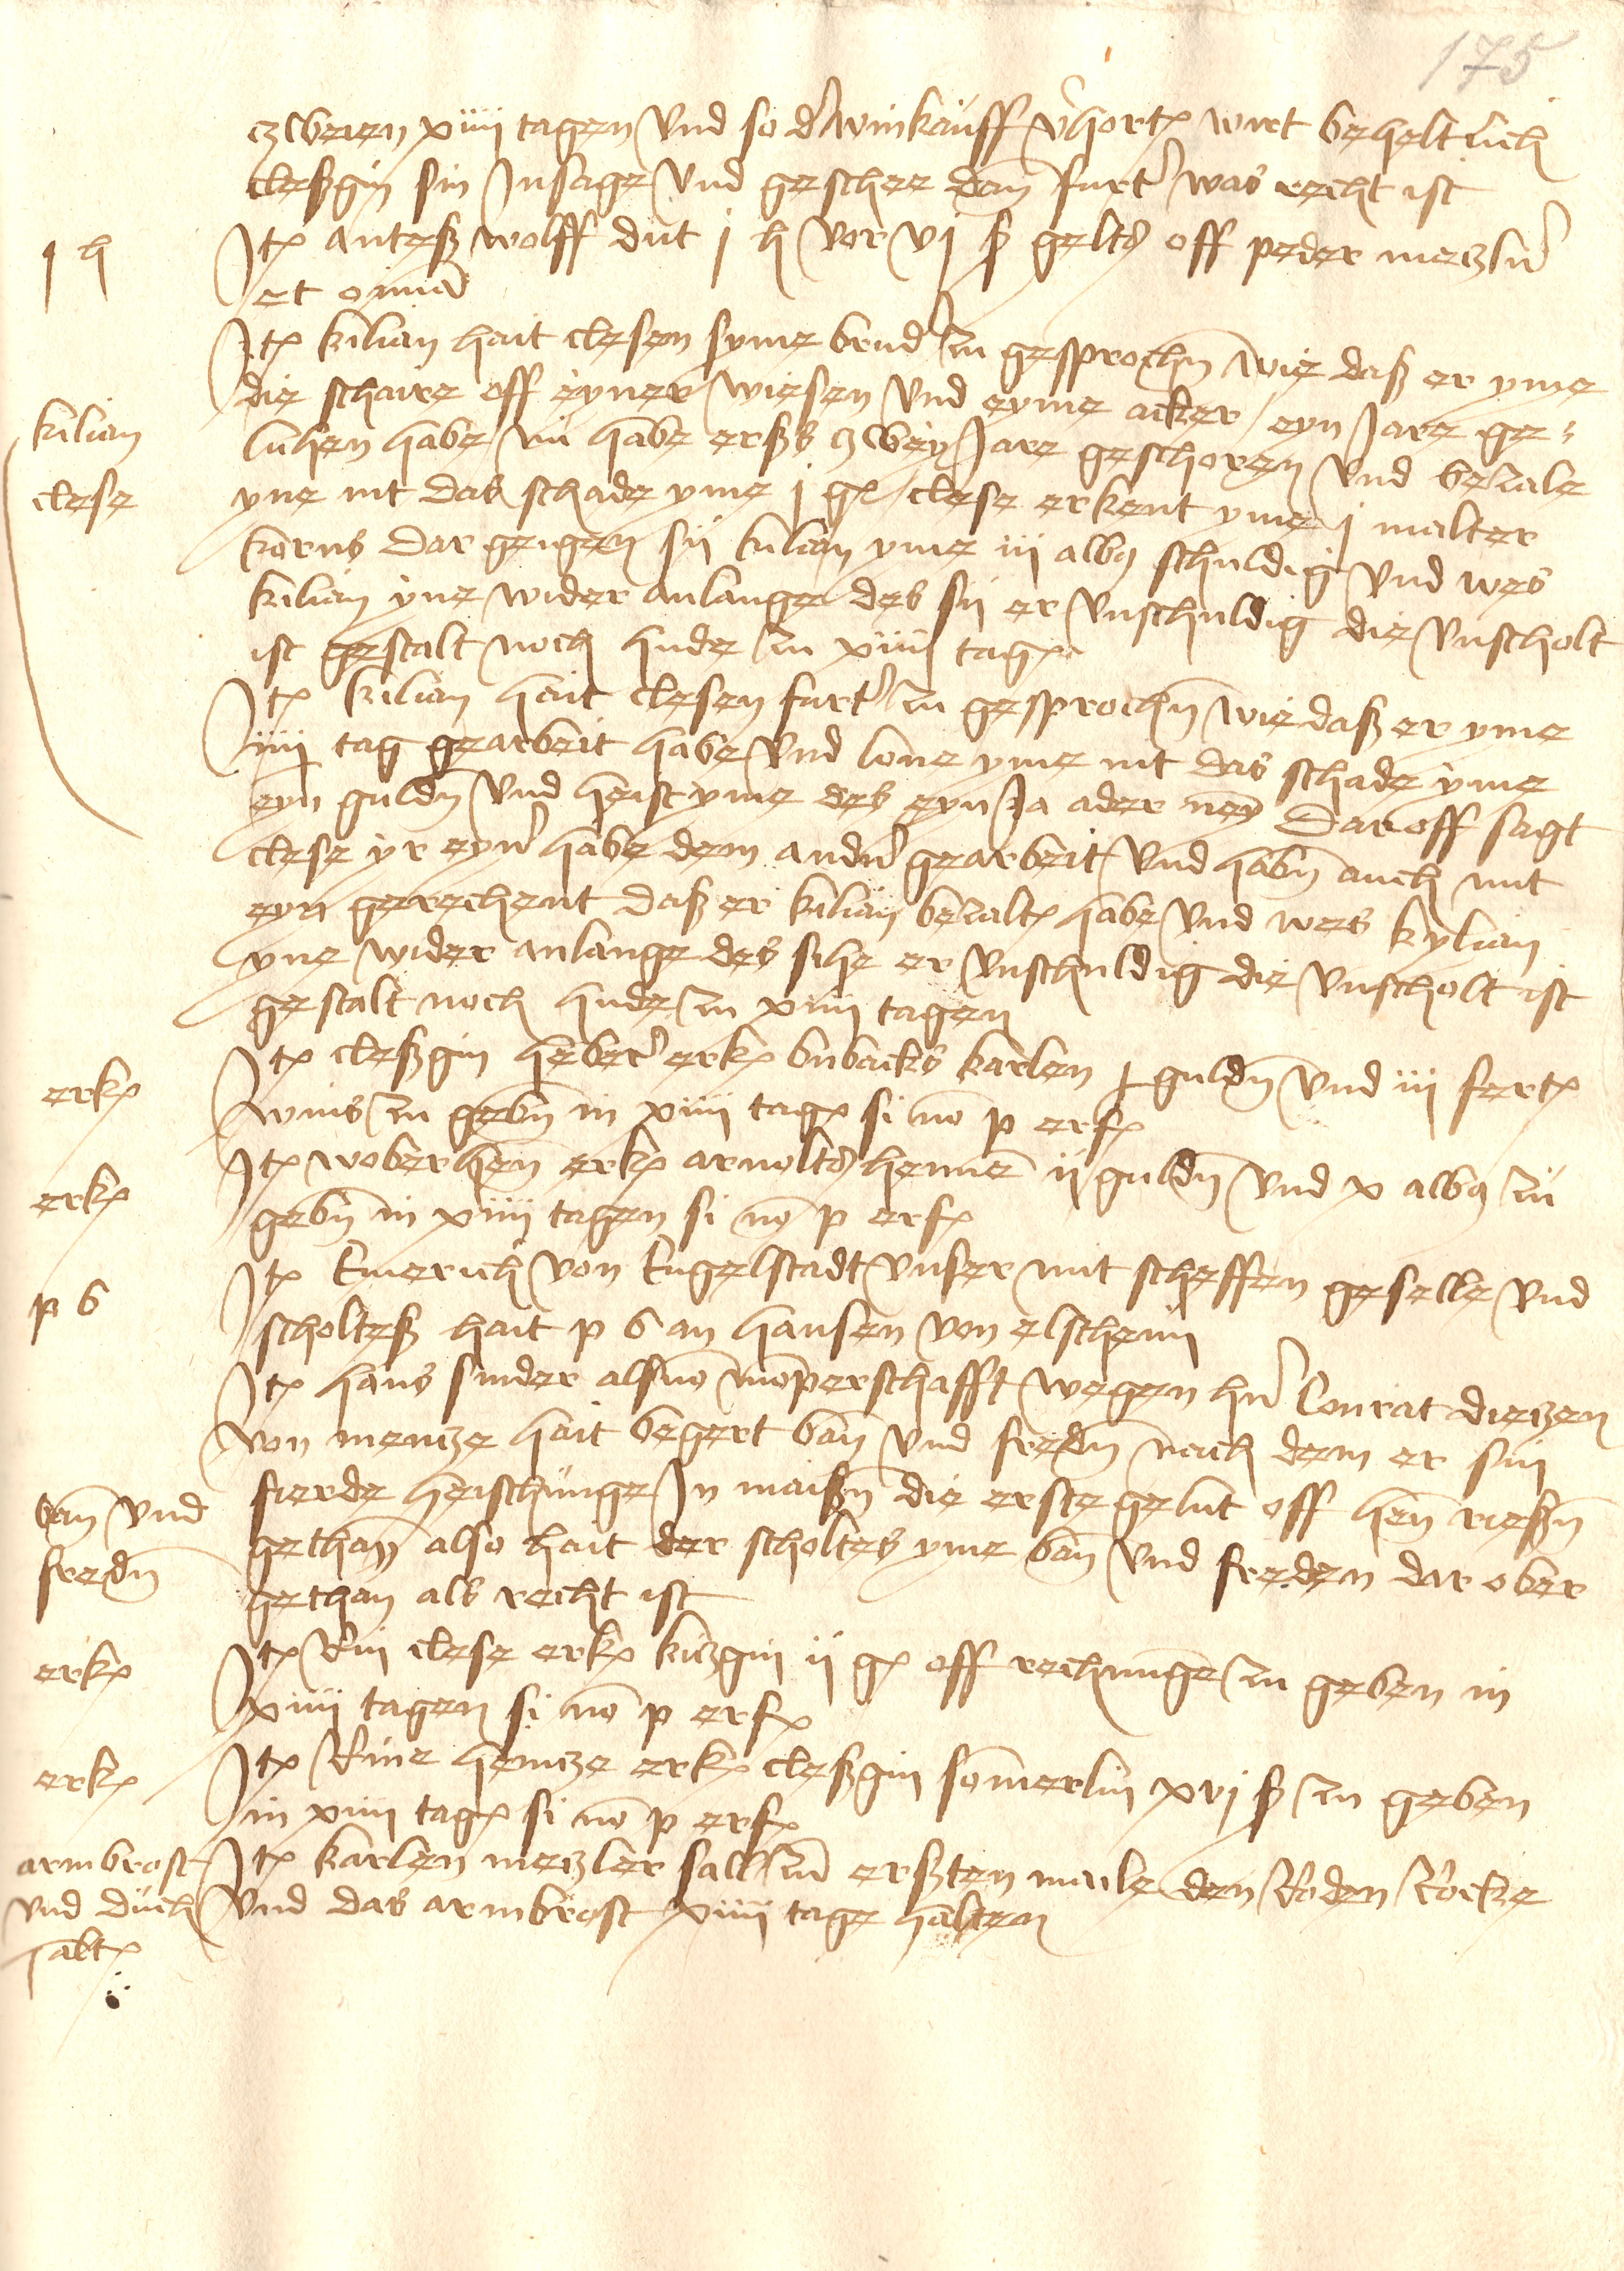 175
zweien xiiij tagen vnd so d' winkauff v'hort wirt beheltlich
cleßgin sin Jnsage vnd geschee dan furt' was recht ist
j h
Jt antess wolff dut j h vor vj ß gelts off peder metzler
et omnia
Jt kilian hait clesen syme brud' zu gesprochn wie daß er yme
die schaire off eyner wiesen vnd eyme acker eyn Jare ge-
kilian
luhen habe nu habe erßs zwey Jare geschoren vnd bezale
clese
yne nit das schade yme j gl clese erkent yme j malter
korns dar geigen sij kilian yme iij albs schuldig vnd wes
kilian yne wider anlange des sij er vnschuldig die vnscholt
ist gestalt noch hude zu xiiij tag
Jt kilian hait clesen furt' zu gesprochn wie daß er yme
iiij tag gearbeit habe vnd lone yme nit das schade yme
eyn guldn vnd heist yme des eyn Ja ader ney Dar off sagt
clese yr eyn' habe dem andn' gearbeit vnd habn auch mit
eyn gerechent daß er kilian bezalt habe vnd wes kylian
yne wider anlange des sihe er vnschuldig die vnscholt ist
gestalt noch hude zu xiiij tagen
erk
Jt cleßgin heber' erk bubacks karlen j guldn vnd iij fert
wins zu gebn in xiiij tag si no p erf
erk
Jt woberhen erk arnolts henne ij guldn vnd x albs zu
gebn in xiiij tagen si no p erf
p b
Jt Emerich von Engelstadt vnser mit scheffen geselle vnd
scholteß hait p b an hansen von elscheim
Jt hans snider als mo mo͞perschafft wegen hn' Conrat dietzen
von mentze hait begert ban vnd fredn nach dem er sin
ban vnd
fierde heischunge Jn maißn die erste gelut off hen rießn
fredn
gethan also hait der scholtes yme ban vnd freden dar ober
gethan als recht ist
erk
Jt Rin clese erk kitzgin ij gl off rechnunge zu geben in
xiiij tagen si no p erf
erk
Jt Rine hentze erk cleßgin somerlin xvj ß zu geben
in xiiij tag si no p erf
armbrost
Jt karlen metzler sall zu erßten male den Roden Rocke
vnd duch
vnd das armbrost xiiij tage halten
halt